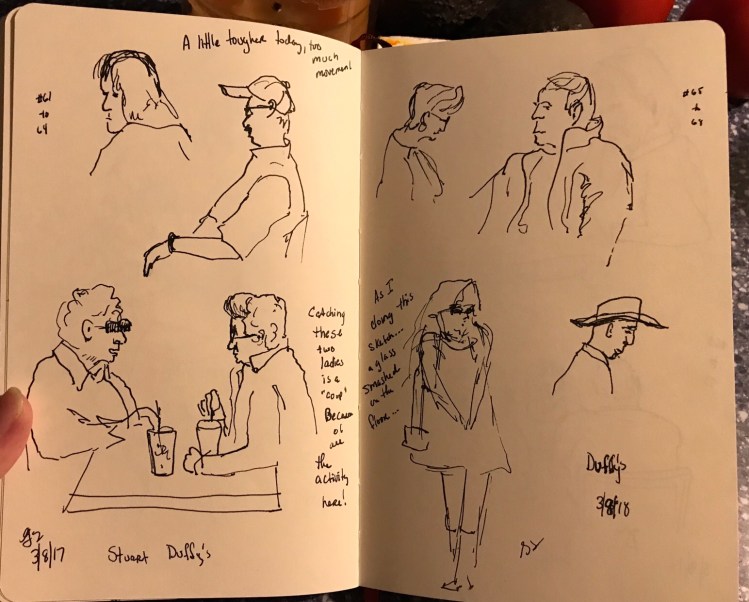 A little tougher today, too
much
movement
#61
to
64
Catching
these
two
ladies
is a
"coup"
Because
of
all
the
activity
here!
3/8/17
Stuart Duffy's
#65
to
68
As I
doing this
sketch...
a glass
smashed
on the
floor...
Duffy's
3/8/18